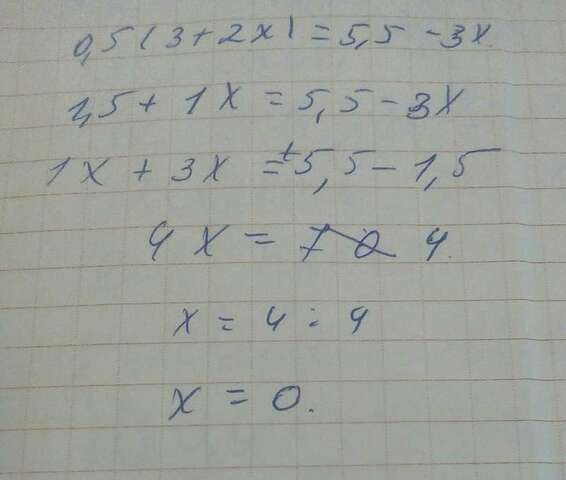 0,5(3+2x)=5,5-3x
1,5+1x=5,5-3x
1x+3x=+5,5-1,5
4x=4.
x=4:4
x=0.